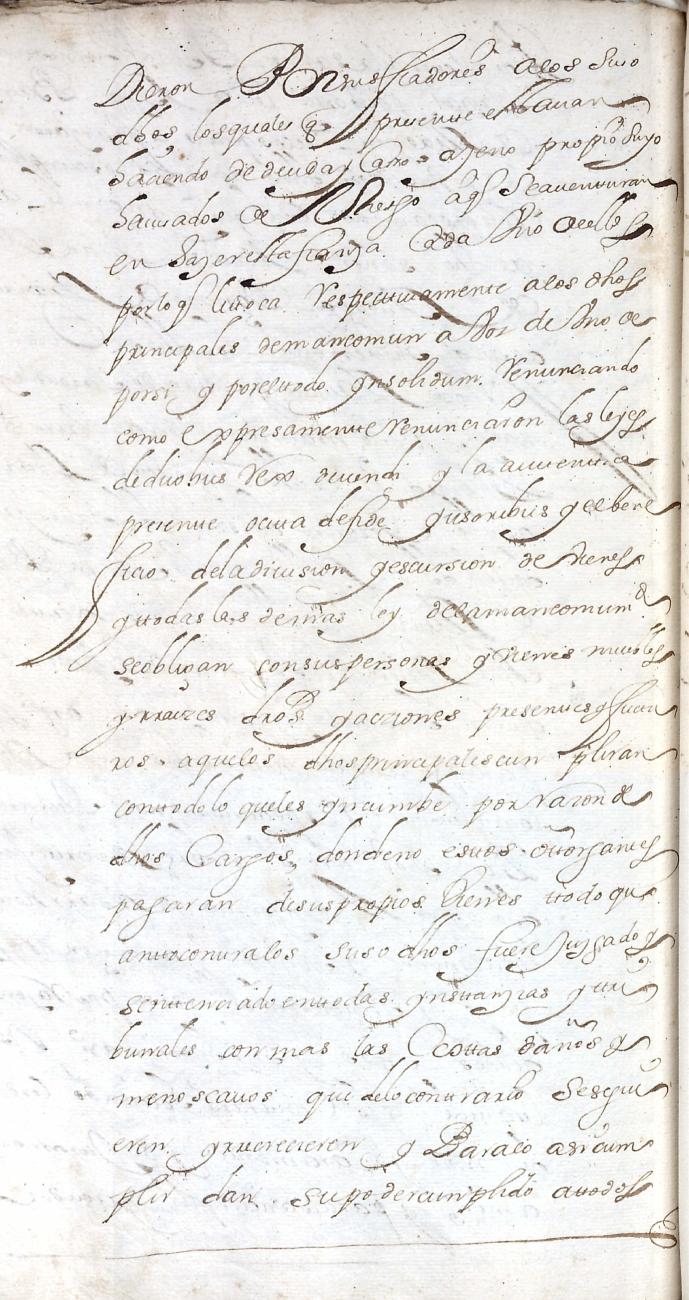 Dieron Por sus fiadores a los suso
dhos los quales q presente estavan
haciendo de deuda y caso ageno propio suyo
havisados de el Riesgo a q se aventuran
en hazer esta fianza Cada Uno de ellos
por lo q le ttoca Respectivamente a los dhos
principales de mancomun a Voz de Uno de
por si y por el ttodo ynsolidum Renunciando
como expresamente Renunciaron las leyes
de duobus Rex devendi y la autentica
presente ocita de fide yusoribus y el bene
ficio de la division y escursion de Vienes
y ttodas las demas ley de la mancomund
se obligan con sus personas y Vienes muebles
y rraizes dros y acziones presentes y futu
ros a que los dhos principales cunpliran
con ttodo lo que les yncumbe por razon de
dhos Cargos donde no estos ottorgantes
pagaran de sus propios Bienes ttodo que
antto contra los suso dhos fuere Juzgado y
sentenciado en ttodas ynstanzias y ttri
bunales con mas las Costtas daños y
menoscavos que de lo contrario se sigui
eren y rrecrecieren y Para lo asi cum
plir dan su poder cumplido a ttodos